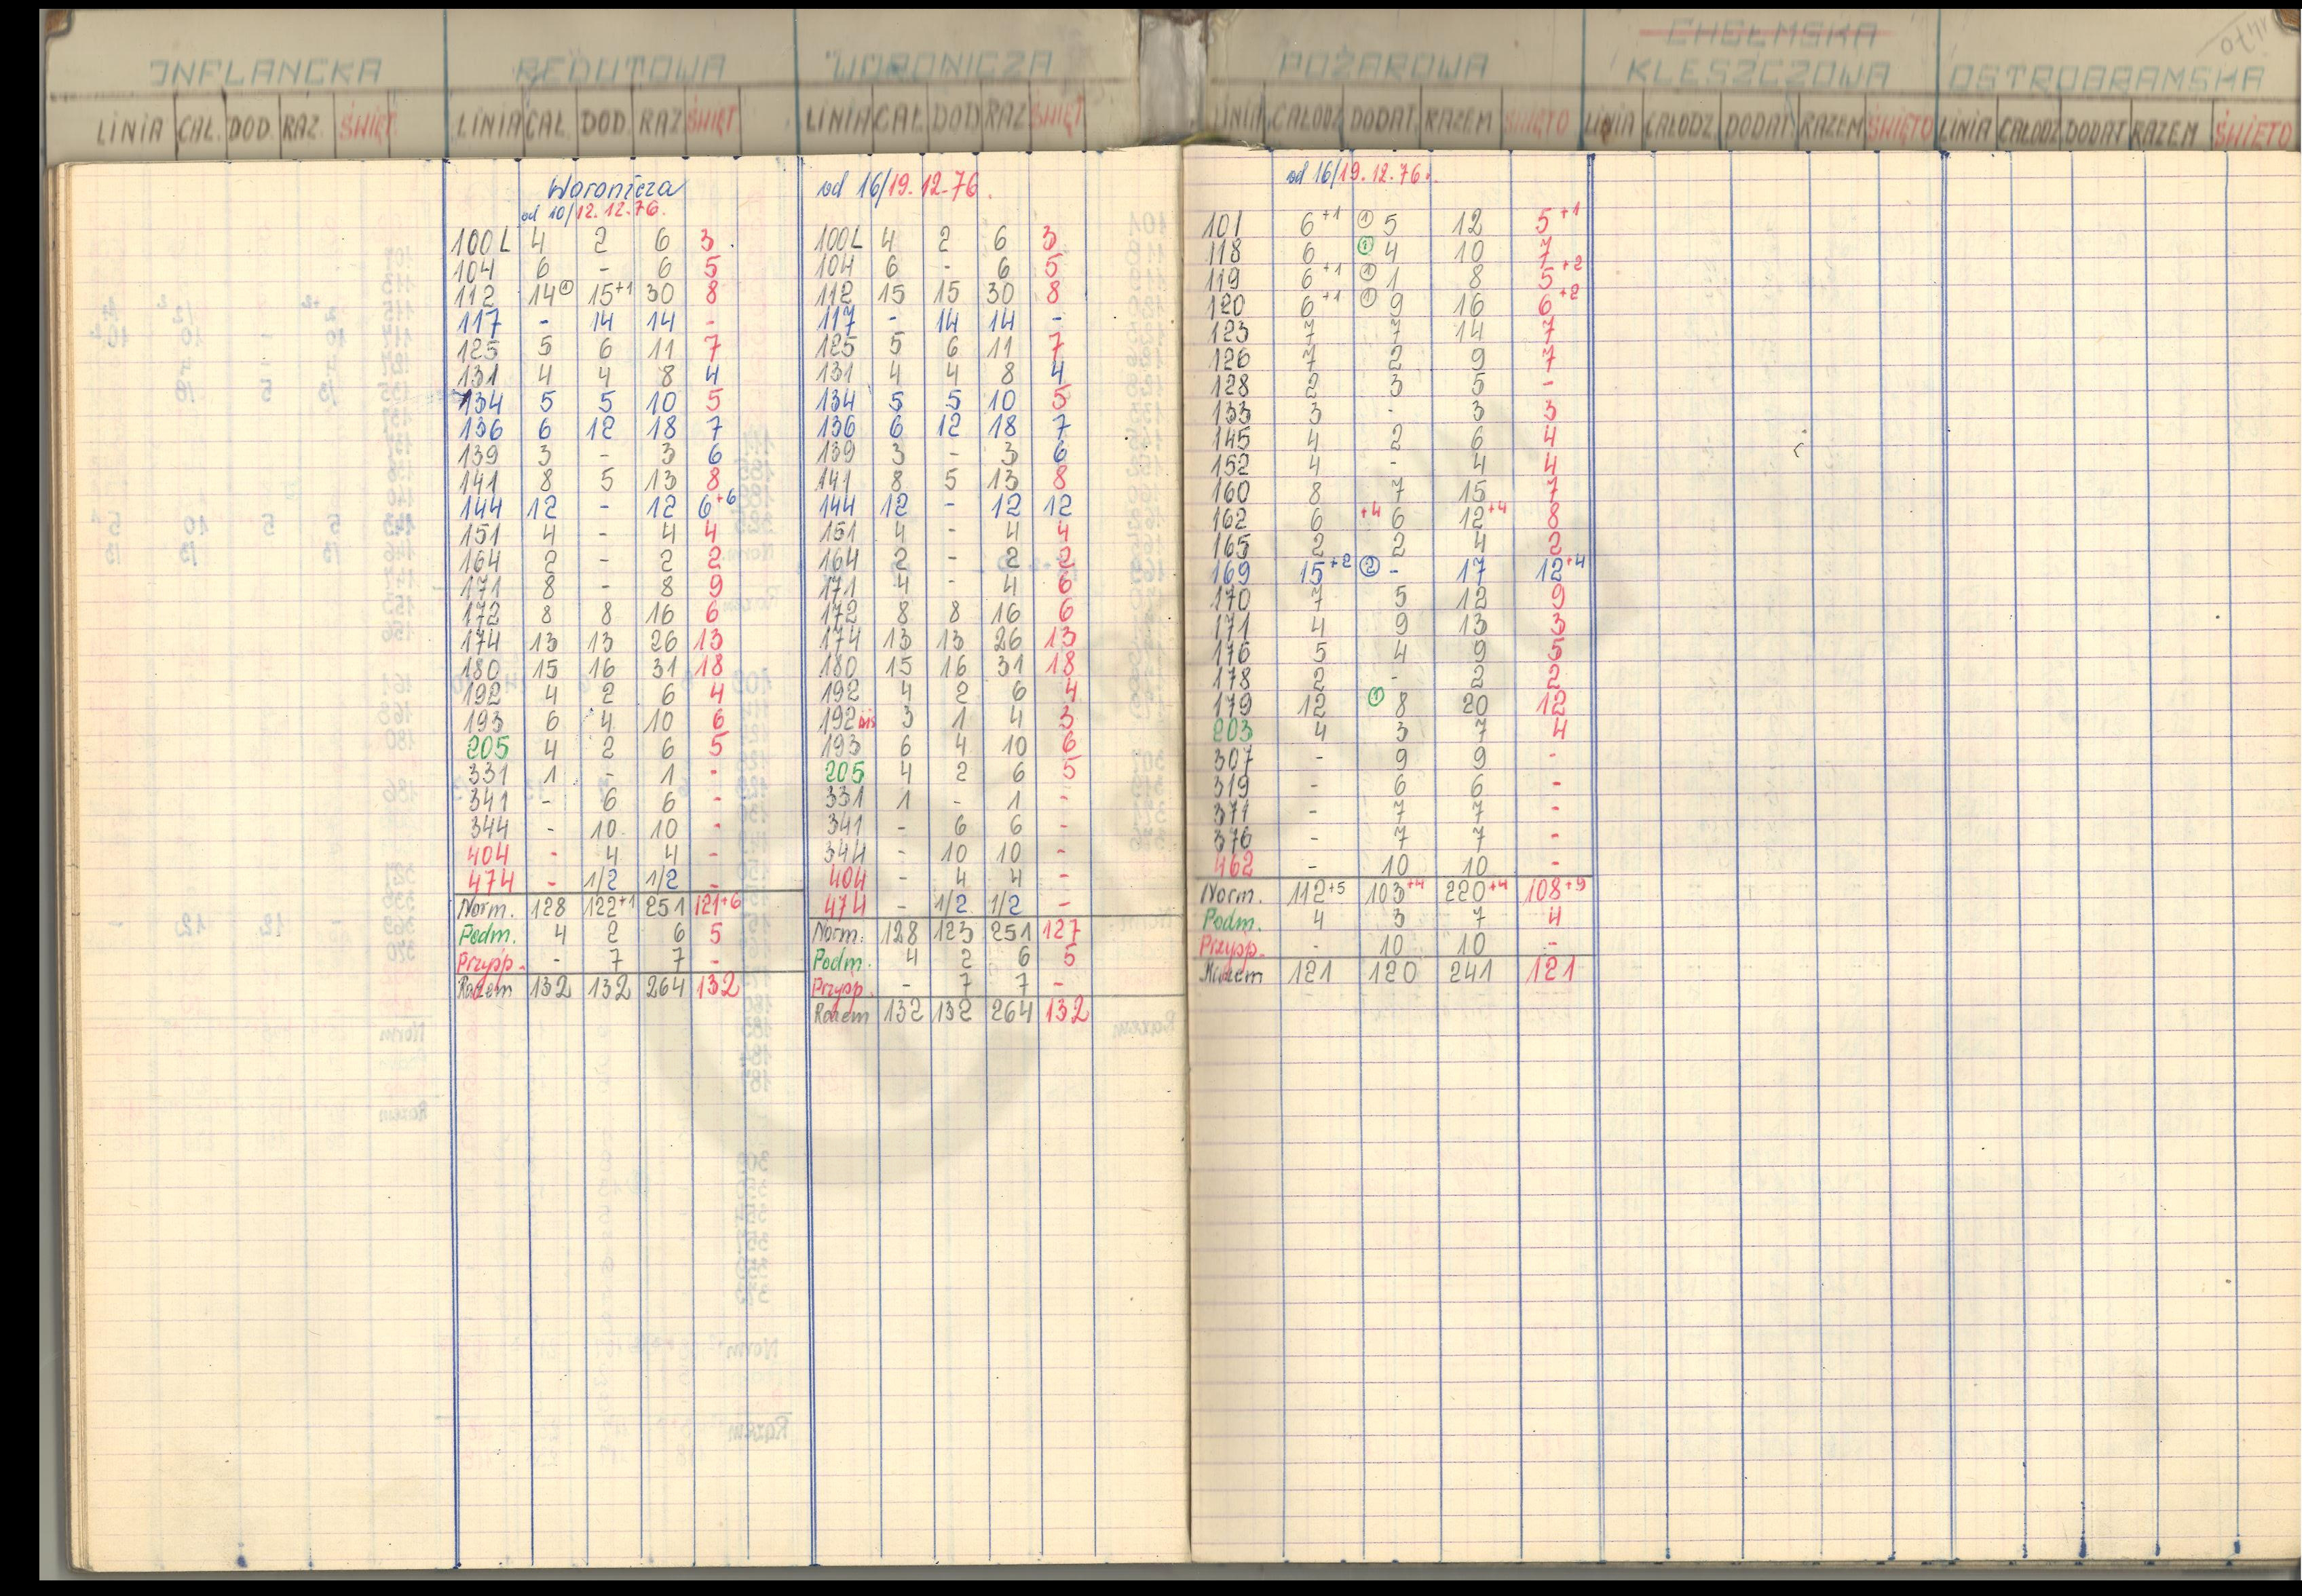 INFLANCKA REDUTOWA WORONICZA POŻAROWA CHEŁMSKA KLESZCZOWA OSTROBRAMSKA
LINIA CAŁ. DOD. RAZ. ŚWIĘT. LINIA CAŁ. DOD. RAZ ŚWIĘT LINIA CAŁ. DOD RAZ ŚWIĘT LINIA CAŁODZ DODAT. RAZEM ŚWIĘTO LINIA CAŁODZ DODAT. RAZEM ŚWIĘTO LINIA CAŁODZ. DODAT RAZEM ŚWIĘTO
Woronicza
od 10/12.12.76.
100L 4 2 6 3
104 6 - 6 5
112 14① 15+1 30 8
117 - 14 14 -
125 5 6 11 7
131 4 4 8 4
134 5 5 10 5
136 6 12 18 7
139 3 - 3 6
141 8 5 13 8
144 12 - 12 6+6
151 4 - 4 4
164 2 - 2 2
171 8 - 8 9
172 8 8 16 6
174 13 13 26 13
180 15 16 31 18
192 4 2 6 4
193 6 4 10 6
205 4 2 6 5
331 1 - 1 -
341 - 6 6 -
344 - 10 10 -
404 - 4 4 -
474 - 1/2 1/2 -
Norm. 128 122+1 251 121+6
Podm. 4 2 6 5
Przysp. - 7 7 -
Razem 132 132 264 132
od 16/19.12.76.
100L 4 2 6 3
104 6 - 6 5
112 15 15 30 8
117 - 14 14 -
125 5 6 11 7
131 4 4 8 4
134 5 5 10 5
136 6 12 18 7
139 3 - 3 6
141 8 5 13 8
144 12 - 12 12
151 4 - 4 4
164 2 - 2 2
171 4 - 4 6
172 8 8 16 6
174 13 13 26 13
180 15 16 31 18
192 4 2 6 4
192 bis 3 1 4 3
193 6 4 10 6
205 4 2 6 5
331 1 - 1 -
341 - 6 6 -
344 - 10 10 -
404 - 4 4 -
474 - 1/2 1/2 -
Norm. 128 123 251 127
Podm. 4 2 6 5
Przysp. - 7 7 -
Razem 132 132 264 132
od 16/19.12.76.
101 6+1 ① 5 12 5+1
118 6 ① 4 10 7
119 6+1 ① 1 8 5+2
120 6+1 ① 9 16 6+2
123 7 7 14 7
126 7 2 9 7
128 2 3 5 -
133 3 - 3 3
145 4 2 6 4
152 4 - 4 4
160 8 7 15 7
162 6 +4 6 12+4 8
165 2 2 4 2
169 15+2 ② - 17 12+4
170 7 5 12 9
171 4 9 13 3
176 5 4 9 5
178 2 - 2 2
179 12 ① 8 20 12
203 4 3 7 4
307 - 9 9 -
319 - 6 6 -
371 - 7 7 -
376 - 7 7 -
462 - 10 10 -
Norm. 112+5 103+4 220+4 108+9
Podm. 4 3 7 4
Przysp. - 10 10 -
Razem 121 120 241 121